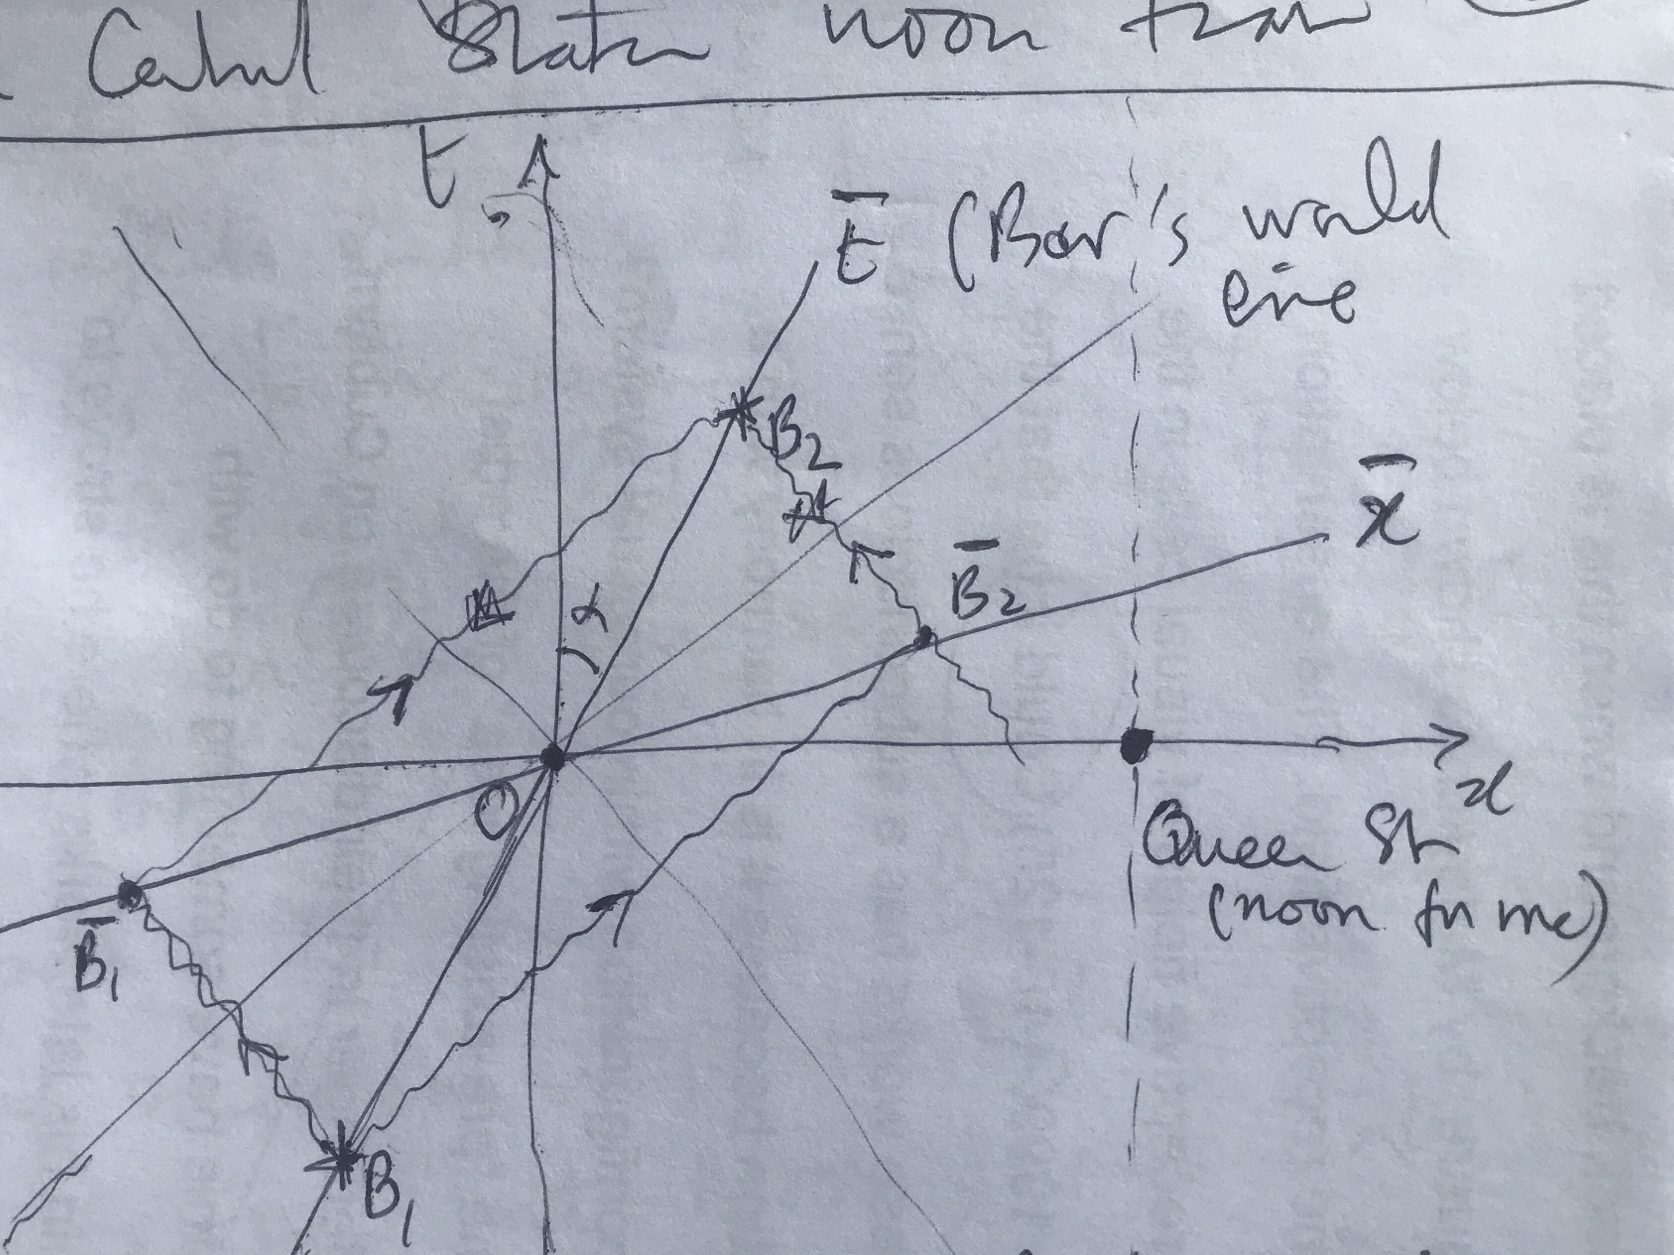 Central Station noon train
t
t̄ (Bar's world
line
B₂
x̄
B̄₂
α
O
x
Queen St
(noon for me)
B̄₁
B₁